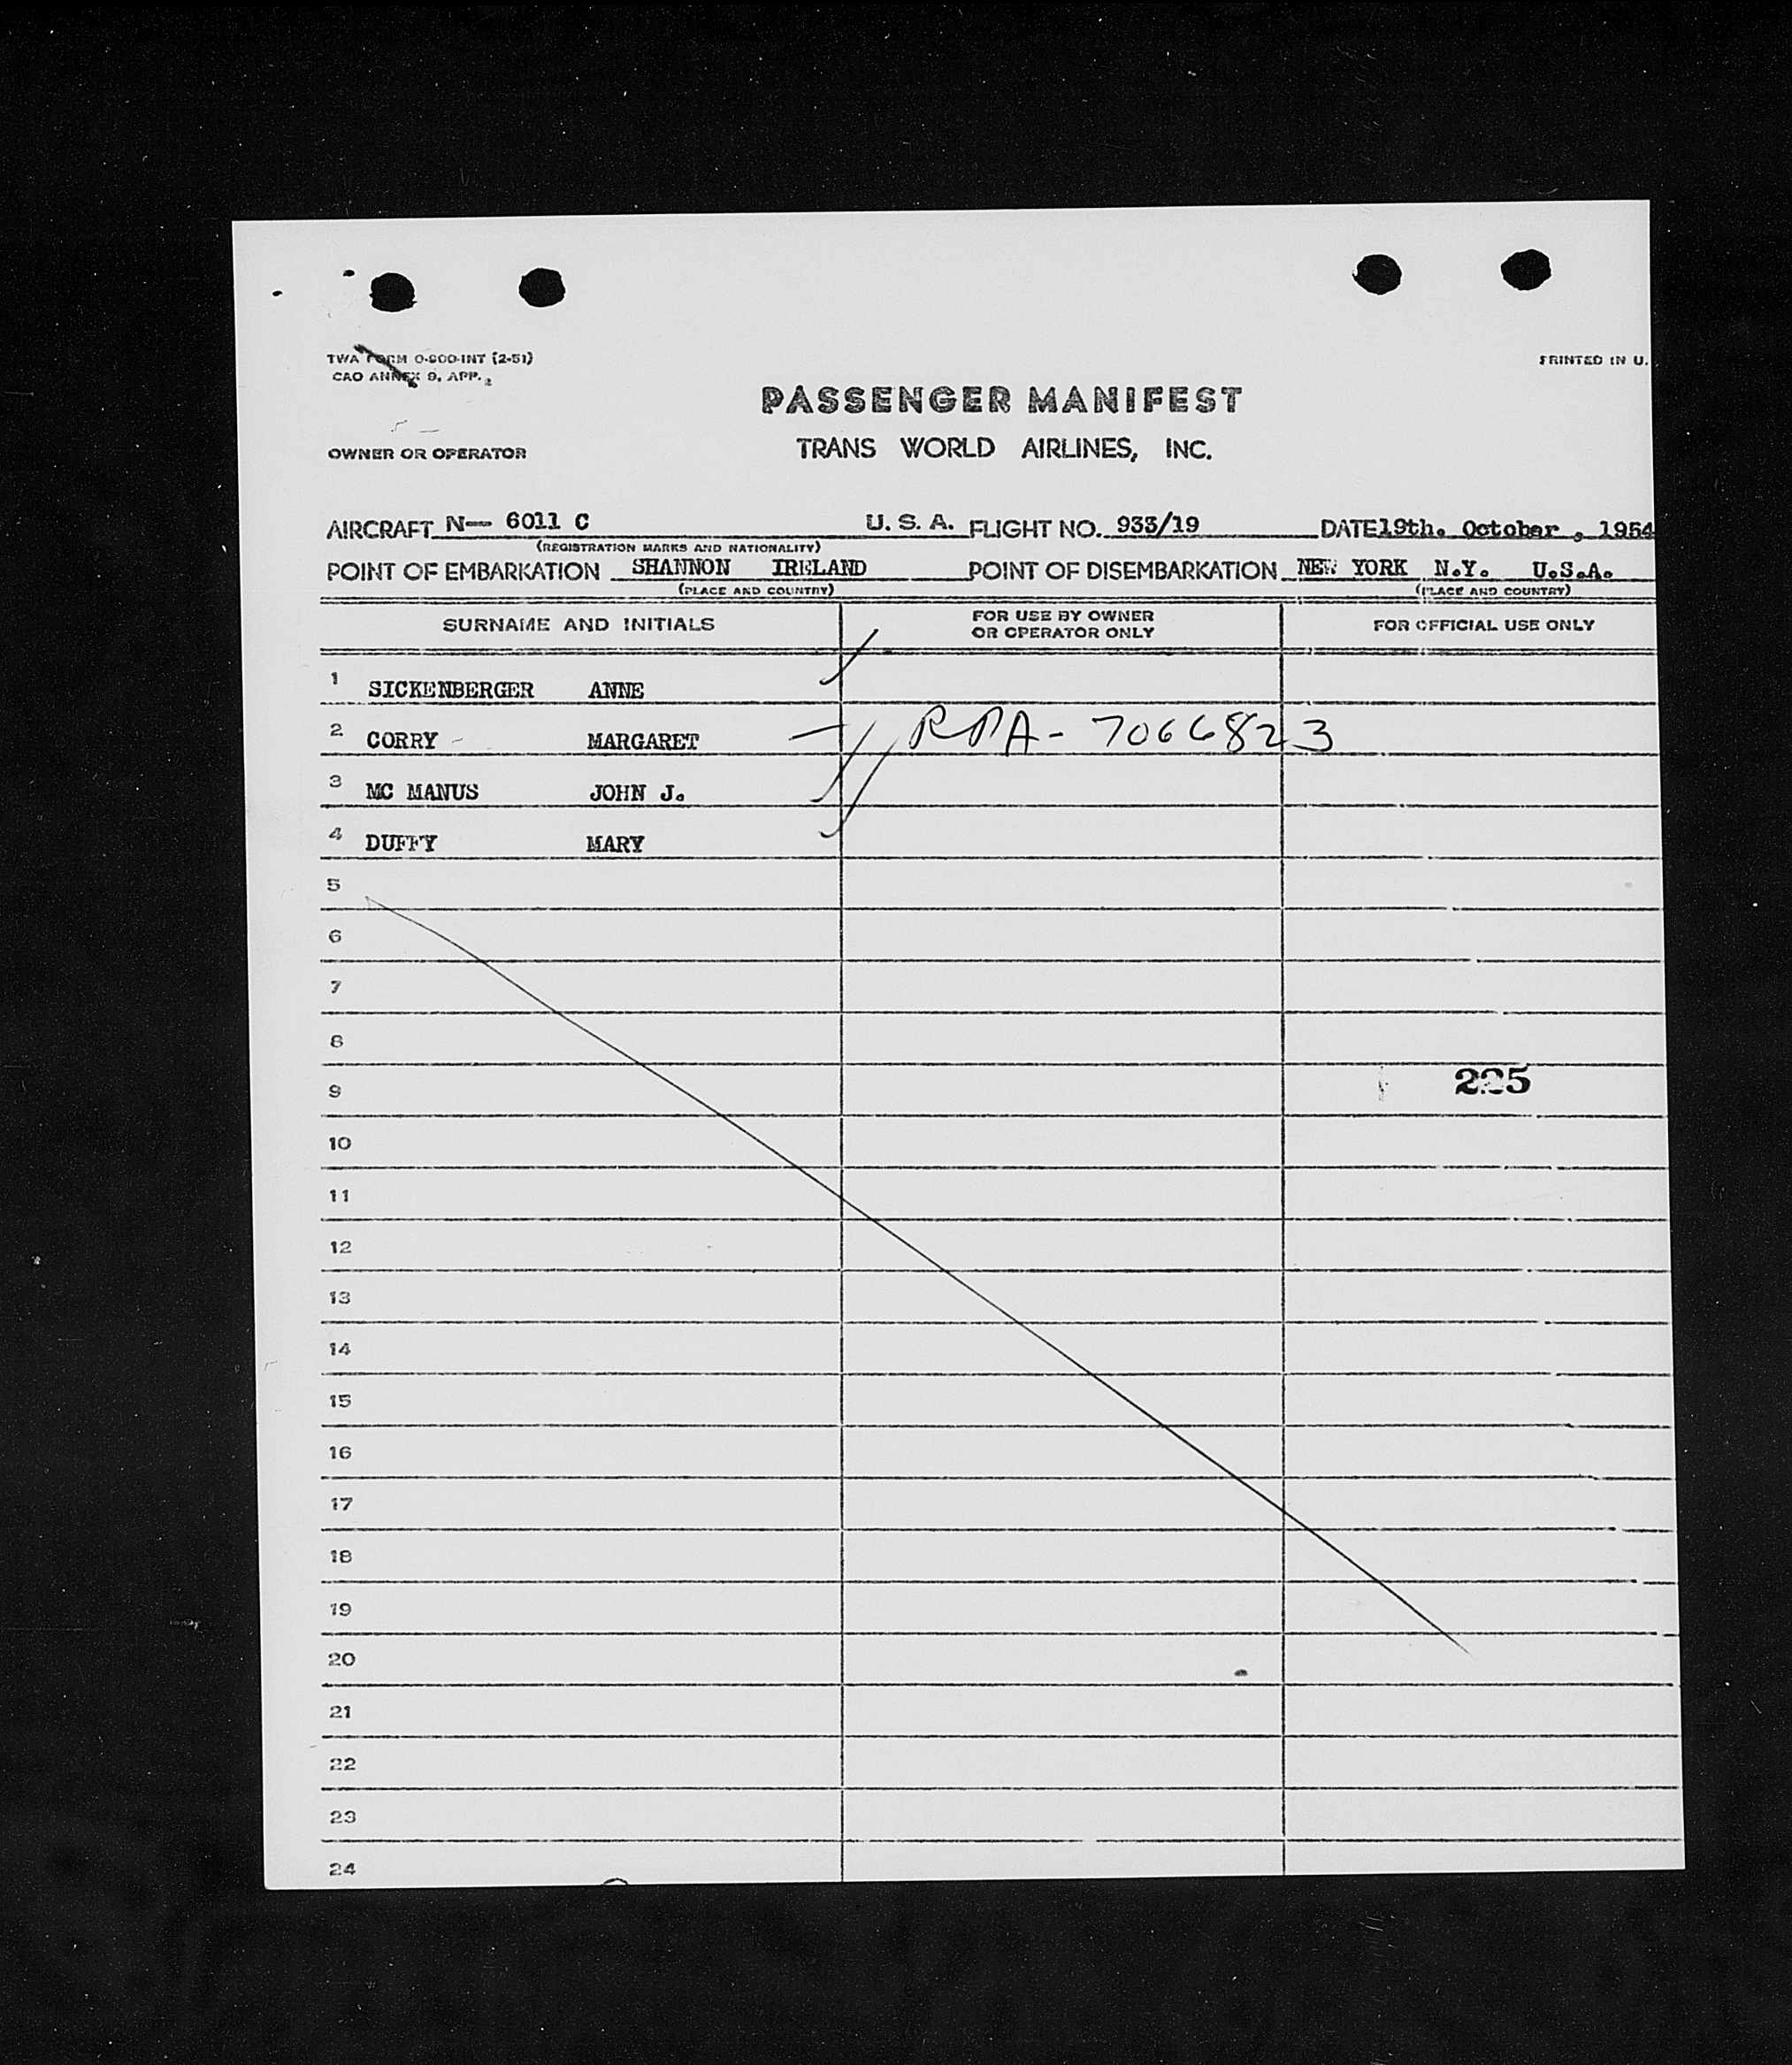 TWA FORM O-900-INT (2-51)
CAO ANNEX 9, APP. 2
PRINTED IN U.
PASSENGER MANIFEST
OWNER OR OPERATOR
TRANS WORLD AIRLINES, INC.
AIRCRAFT N— 6011 C U. S. A. FLIGHT NO. 933/19 DATE 19th. October , 1954
(REGISTRATION MARKS AND NATIONALITY)
POINT OF EMBARKATION SHANNON IRELAND POINT OF DISEMBARKATION NEW YORK N.Y. U.S.A.
(PLACE AND COUNTRY) (PLACE AND COUNTRY)
SURNAME AND INITIALS
FOR USE BY OWNER
OR OPERATOR ONLY
FOR OFFICIAL USE ONLY
1 SICKENBERGER ANNE
2 CORRY MARGARET RPA- 7066823
3 MC MANUS JOHN J.
4 DUFFY MARY
5
6
7
8
9
10
11
12
13
14
15
16
17
18
19
20
21
22
23
24